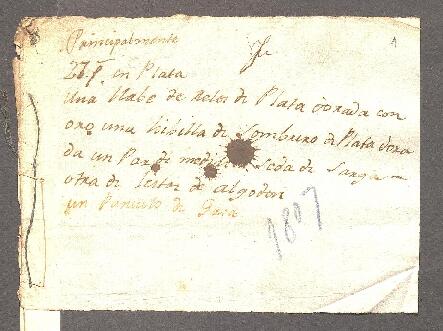 Principalmente
27 ps en Plata
una llabe de Relos de Plata dorada con
oro una hibilla de Sombrero de Plata dora
da un Par de medias seda de Sarga
otra de de algodon
un Panuelo de Gasa
1807